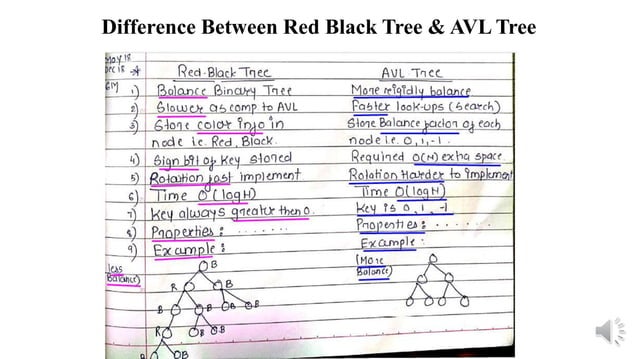 Difference Between Red Black Tree & AVL Tree
May 18
Dec 18
Red-Black Tree AVL Tree
6M 1) Balance Binary Tree More reigidly balance
2) Slower as comp to AVL Faster look-ups (search)
3) Store color info in Store Balance factor of each
node i.e. Red, Black. node i.e. 0, 1, -1.
4) Sign bit of key stored Required O(N) extra space
5) Rotation fast implement Rotation Harder to implement
6) Time O (log H) Time O(log H)
7) Key always greater then 0. Key is 0, 1, -1
8) Properties : ....... Properties : .......
9) Example : Example :
less
Balance) (More
Balance)
B
R B
B B B B
R B B
B B